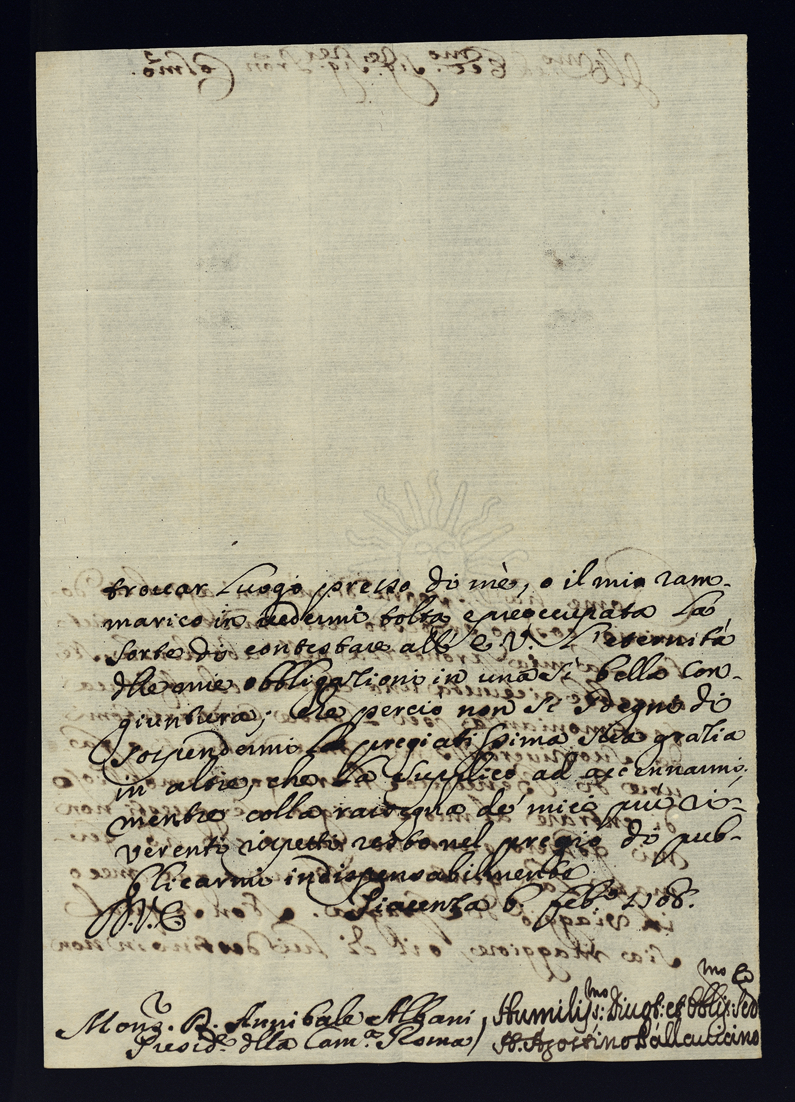 trouar Luogo presso di mè, o il mio ram-
marico in uedermi tolta e preoccupata la
sorte di contestare all' E. V. l'eternità
dlle mie obbligationi in una sì bella con-
giuntura; Ma perciò non si sdegni di
sospendermi la pregiatissima sua gratia
in altre, che la supplico ad accennarmi,
mentre colla rassegna de' miei più ri-
uerenti rispetti resto nel pregio di pub-
blicarmi indispensabilmente
D. V. E. Piacenza 6. Febo. 1708.
Monsr. D. Annibale Albani
Presidte. dlla Camra. Roma
Humilissmo: Diuot: et Obblig: Sero
A. Agostino Pallauicino